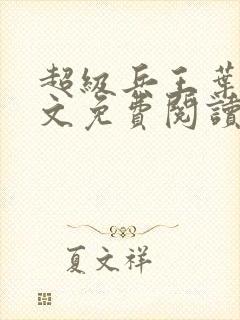 超级兵王葉
文免費閱讀
夏文祥